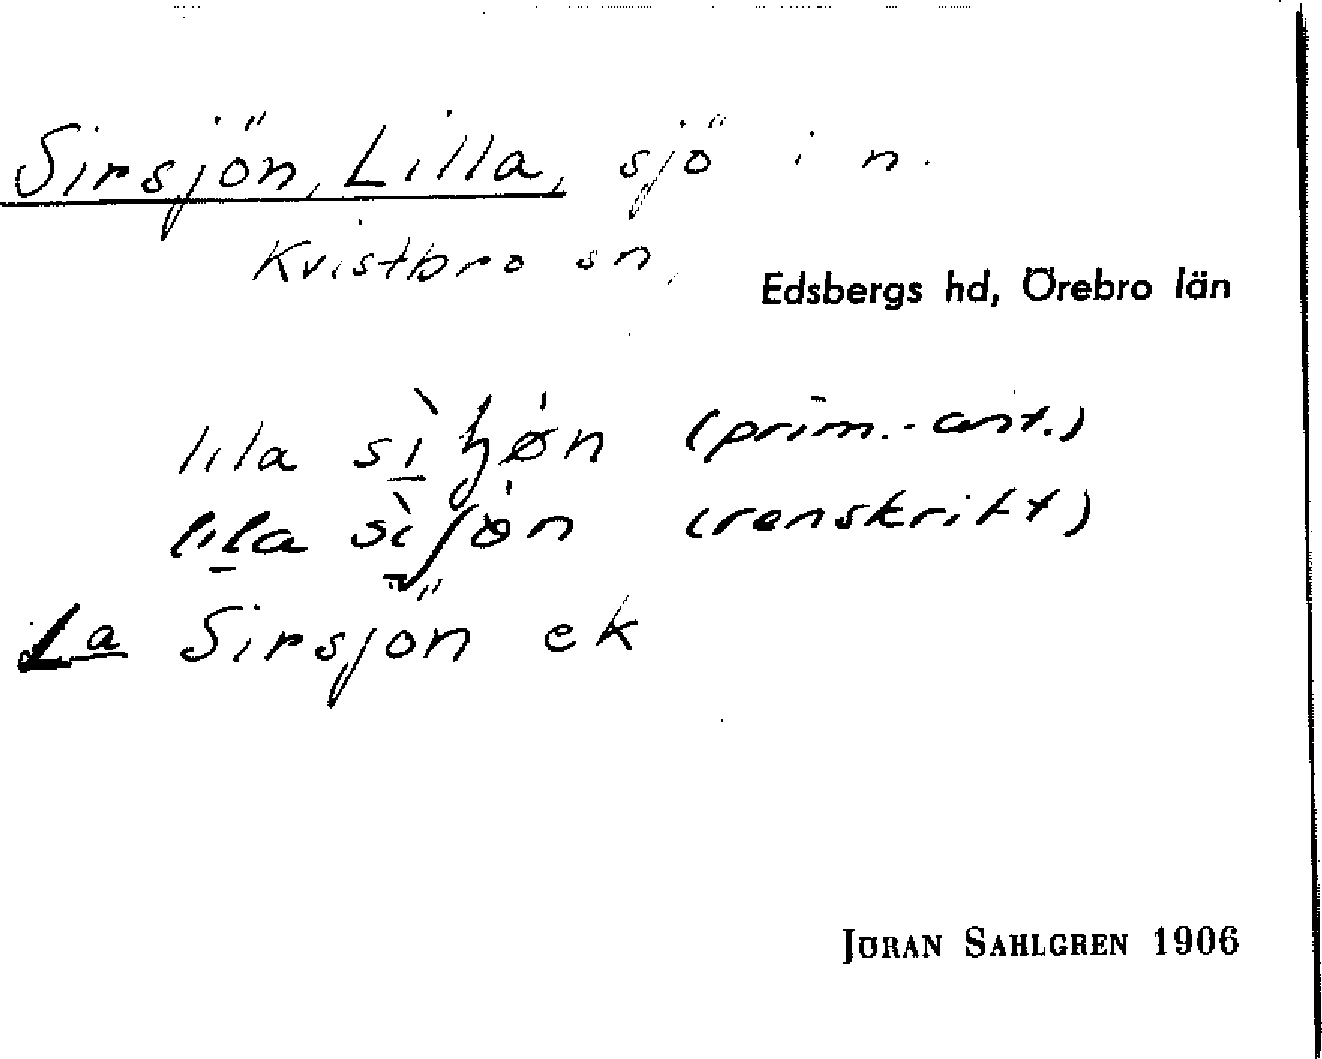 Sirsjön, Lilla, sjö i n.
Kvistbro sn,
Edsbergs hd, Örebro län
lıla sı̀ꞎøn (prim.-ant.)
lıla sı̀ʃøn (renskrift)
La Sirsjön ek
JÖRAN SAHLGREN 1906